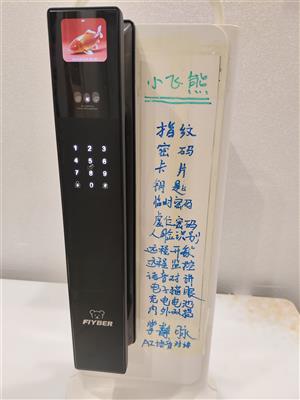 1 2 3
4 5 6
7 8 9
0
FIYBER
小飞熊
指纹
密码
卡片
钥匙
临时密码
虚位密码
人脸识别
远程开
远程监控
语音对讲
电子猫眼
充电电池
内外双
掌静脉
AI语音对讲